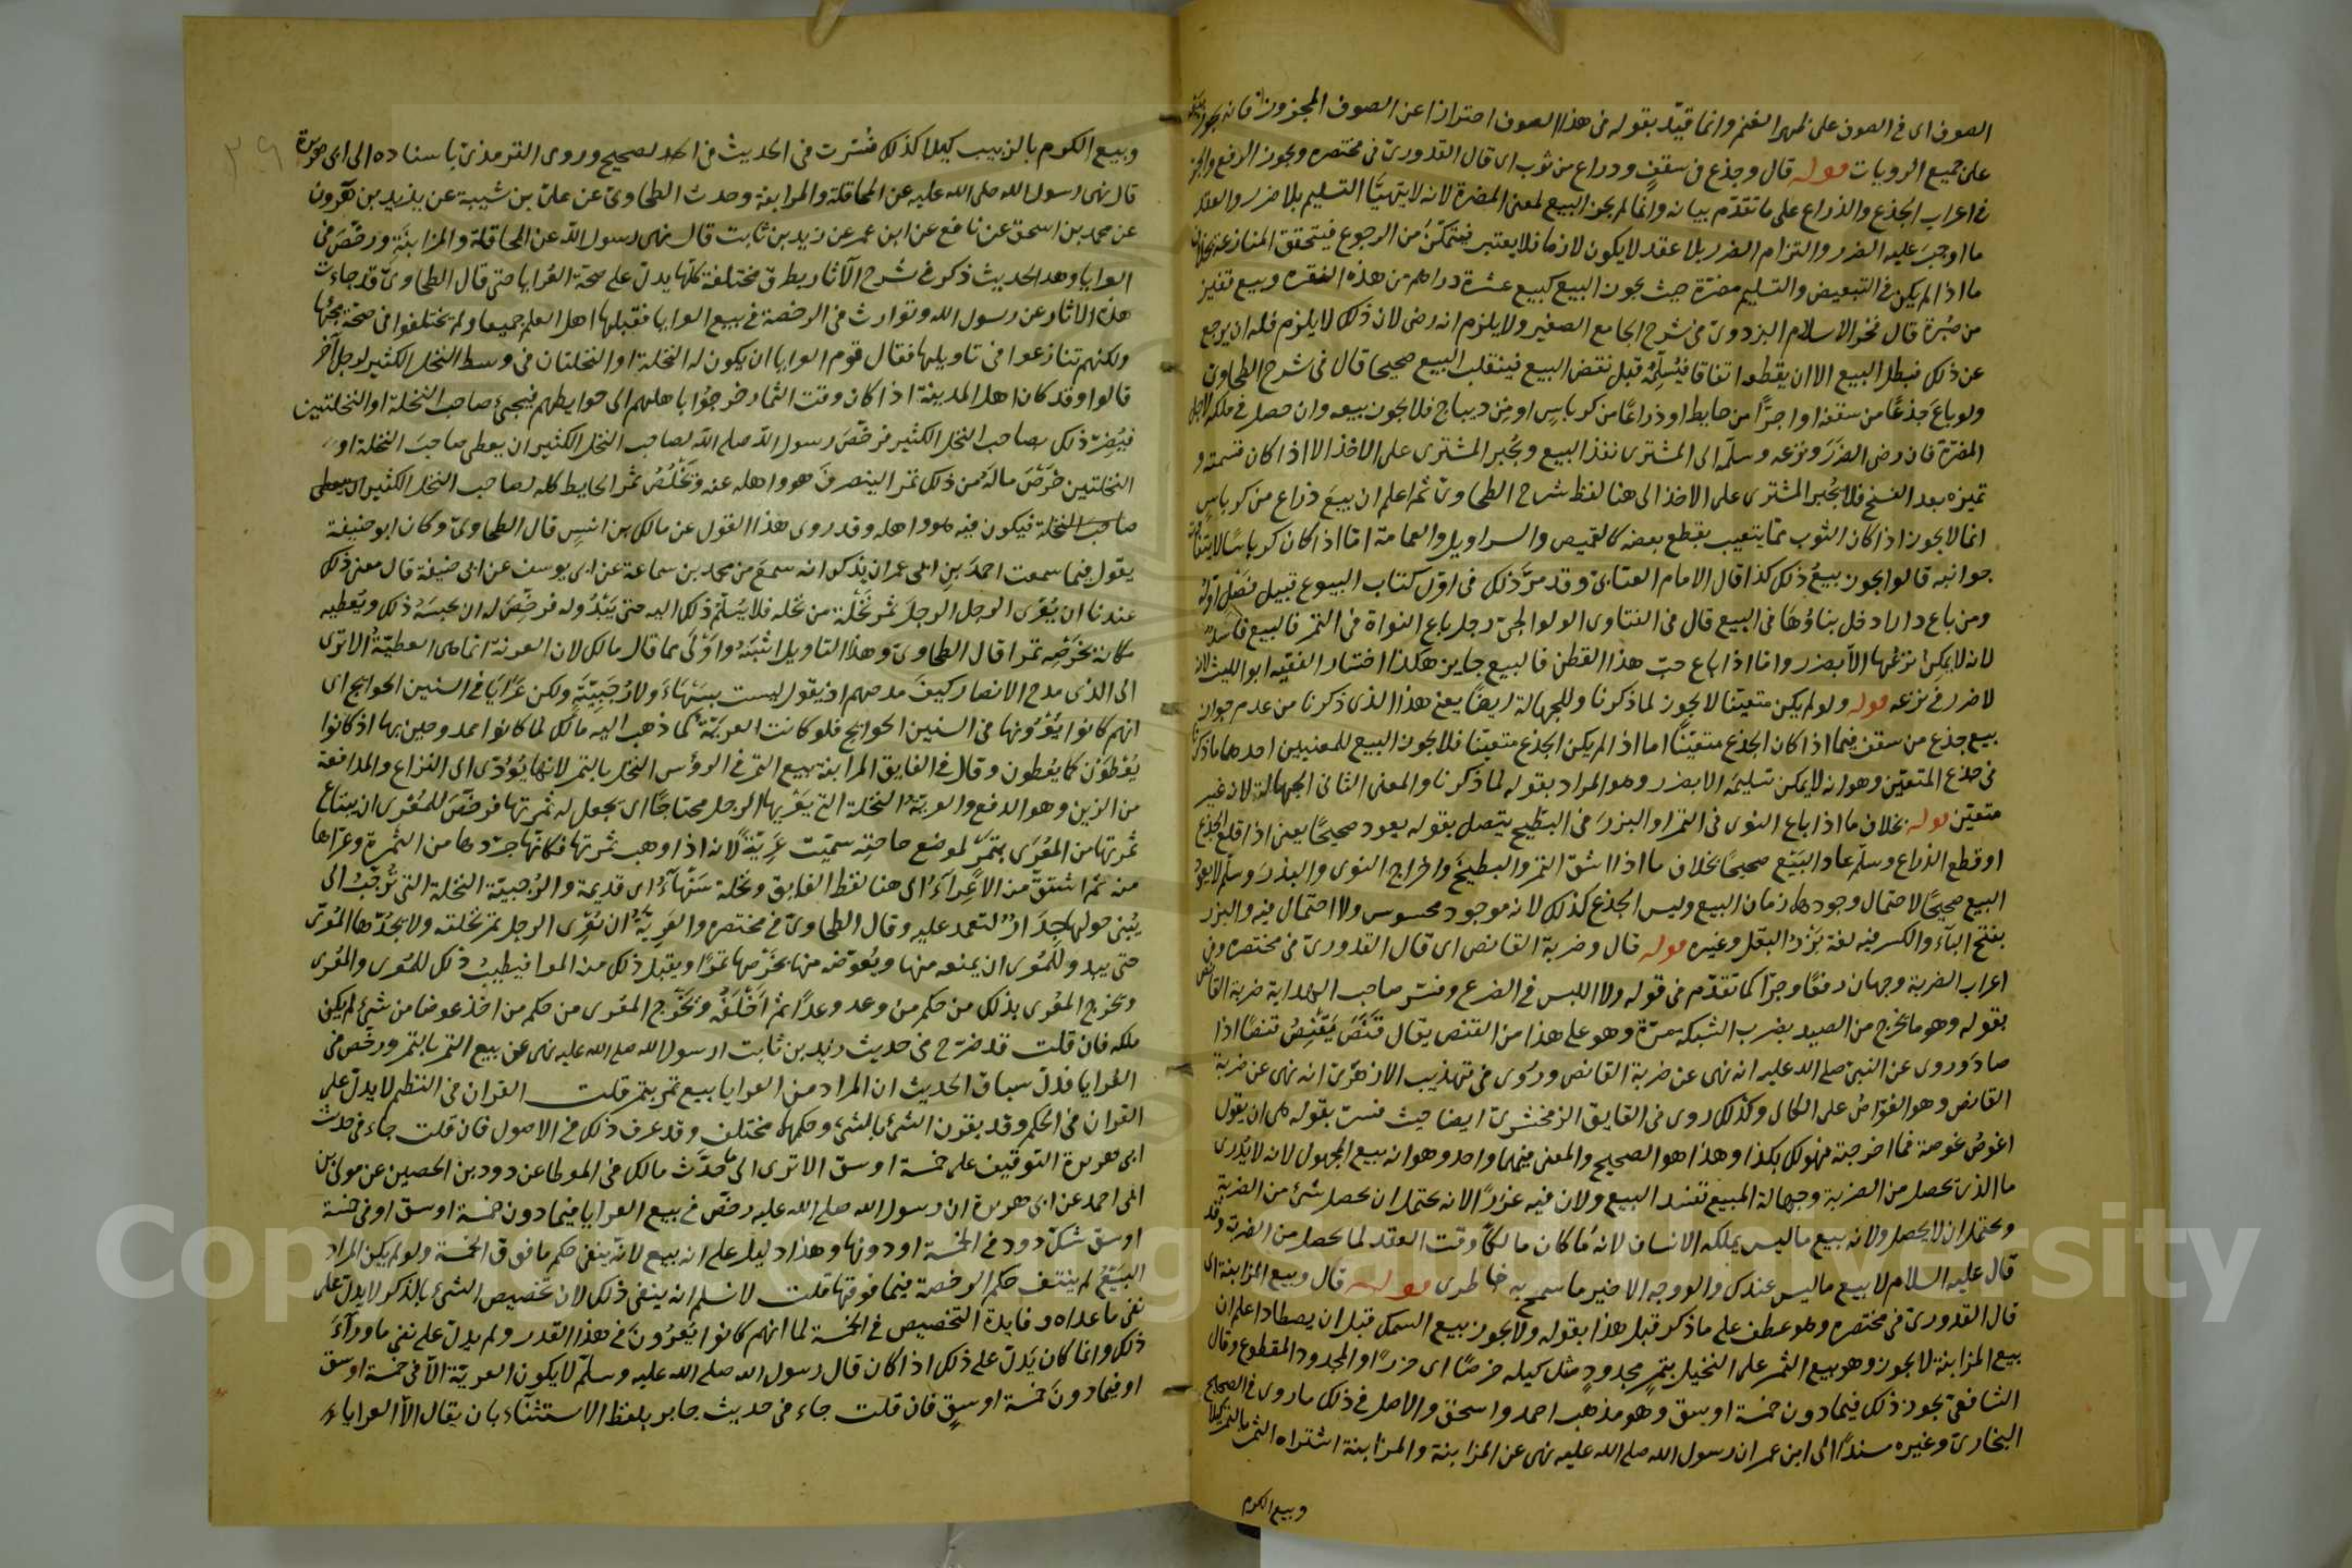 الصوف اى فى الصوف على ظهر الغنم وانما قيّد بقوله فى هذا الصوف احترازا عن الصوف المجزوز فانه يجوز بيعه
على جميع الروايات قوله قال وجذع فى سقف وذراع من ثوب اى قال القدورىّ فى مختصره ويجوز الرفع والجر
فى اعراب الجذع والذراع على ما تقدّم بيانه وانما لم يجز البيع لمعنى المضرة لانه لا يتهيّا التسليم بلا ضرر والعقد
ما اوجبَ عليه الضرر والتزام الضرر بلا عقد لا يكون لازما فلا يعتبر فيتمكّنُ من الرجوع فيتحقق المنازعة بخلاف
ما اذا لم يكن فى التبعيض والتسليم مضرّة حيث يجوز البيع كبيع عشرة دراهم من هذه النقرة وبيع قفيز
من صُبْرة قال فخر الاسلام البزدوىّ فى شرح الجامع الصغير ولا يلزم انه رضى لان ذلك لا يلزم فله ان يرجع
عن ذلك فبطل البيع الا ان يقطعا اتفاقا فيُسلِّمُه قبل نقض البيع فينقلب البيع صحيحا قال فى شرح الطحاوىّ
ولو باعَ جذعًا من سقف او اجرًّا من حايط او ذراعًا من كرباسٍ او من ديباج فلا يجوز بيعه وان حصل فى ملكه لاجل
المضرّة فان رضى الضرَرَ ونزعه وسلّمه الى المشترى نفذ البيع ويُجبر المشترى على الاخذ الا اذا كان قسمته و
تميزه بعد الفسخ فلا يُجبر المشترى على الاخذ الى هنا لفظ شرح الطحاوىّ ثم اعلم ان بيعَ ذراع من كرباسٍ
انما لا يجوز اذا كان الثوب ممّا يتعيب بقطع بعضه كالقميص والسراويل والعمامة امّا اذا كان كرباسًا لا يتفاوت
جوانبه قالوا يجوز بيعُ ذلك كذا قال الامام العتابىّ وقد مرَّ ذلك فى اوّل كتاب البيوع قبيل فصْل قوله
ومن باع دارا دخل بناؤها فى البيع قال فى الفتاوى الولوالجىّ رجل باع النواة فى التمر فالبيع فاسدٌ
لانه لا يمكن نزعُها الا بضرر واما اذا باع حبّ هذا القطن فالبيع جايز هكذا اختار الفقيه ابو الليث لانه
لا ضرر فى نزعه قوله ولو لم يكن متعيّنا لا يجوز لما ذكرنا وللجهالة ايضًا يعنى هذا الذى ذكرنا من عدم جواز
بيع جذع من سقف فيما اذا كان الجذع متعيّنًا اما اذا لم يكن الجذع متعيّنا فلا يجوز البيع للمعنيين احدهما ما ذكرنا
فى جذع المتعيّن وهو انه لا يمكن تسليمُه الا بضرر وهو المراد بقوله لما ذكرنا والمعنى الثانى الجهالة لانه غير
متعيّن قوله بخلاف ما اذا باع النوى فى التمر او البزرَ فى البطيخ يتصل بقوله يعود صحيحًا يعنى اذا قلع الجذع
او قطع الذراع وسلّم عاد البَيْع صحيحًا بخلاف ما اذا شقّ التمرَ والبطيخَ واخراج النوى والبذرَ وسلّم لا يعود
البيع صحيحًا لاحتمال وجودها زمان البيع وليس الجذع كذلك لانه موجود محسوس ولا احتمال فيه والبزر
بفتح الباء والكسر فيه لغة بَزْرُ البقل وغيره قوله قال وضربة القانص اى قال القدورىّ فى مختصره وفى
اعراب الضربة وجهان رفعًا وجرًّا كما تقدّم فى قوله ولا اللبس فى الضرع وفسّر صاحب الهداية ضربة القانص
بقوله وهو ما يخرج من الصيد بضرب الشبكه مرّة وهو على هذا من القنص يقال قَنَصَ يَقْنِصُ قنصًا اذا
صادَ وروى عن النبىّ صلى الله عليه انه نهى عن ضربة القانص ورُوى فى تهذيب الازهرّى انه نهى عن ضربة
القانص وهو الغوّاصُ على اللآلى وكذلك روى فى الفايق الزمخشرىّ ايضا حيث فسّرت بقوله هى ان يقول
اغوصُ غوصة فما اخرجته فهو لك بكذا وهذا هو الصحيح والمعنى فيهما واحد وهو انه بيع المجهول لانه لا يُدرى
ما الذى يحصل من الضربة وجهالة المبيع تفسد البيع ولان فيه غرَرًا لانه يحتمل ان يحصل شئ من الضربة
ويحتمل ان لا يحصل ولانه بيع ما ليس يملكه الانسان لانهُ ما كان مالكًا وقت العقد لما يحصل من الضربة وقد
قال عليه السلام لا بيع ما ليس عندك والوجه الاخير ما سمح به خاطرى قوله قال وبيع المزابنة اى
قال القدورىّ فى مختصره وهو عطف على ما ذكر قبل هذا بقوله ولا يجوز بيع السمك قبل ان يصطاد اعلم ان
بيع المزابنة لا يجوز وهو بيع الثمر على النخيل بتمرٍ مجدودٍ مثل كيله خرصًا اى حزرًا والمجدود المقطوع وقال
الشافعىّ يجوز ذلك فيما دون خمسة اوسق وهو مذهب احمد واسحق والاصل فى ذلك ما روى فى الصحاح
البخارىّ وغيره مسندًا الى ابن عمر ان رسول الله صلى الله عليه نهى عن المزابنة والمزابنة اشتراء الثمر بالتمر كيلًا
وبيع الكوم
٣٩
وبيع الكوم بالزبيب كيلا كذلك فسّرت فى الحديث فى الصحيح وروى الترمذىّ باسناده الى ابى هريرة
قال نهى رسول الله صلى الله عليه عن المحاقلة والمزابنة وحدث الطحاوىّ عن علىّ بن شيبة عن يزيد بن هرون
عن محمد بن اسحق عن نافع عن ابن عمر عن زيد بن ثابت قال نهى رسول الله عن المحاقلة والمزابنَةِ ورخّصَ فى
العرايا وهذا الحديث ذكر فى شرح الآثار بطرق مختلفة كلّها يدلّ على صحّة العُرايا حتى قال الطحاوىّ قد جاءت
هذه الاثار عن رسول الله وتوارث فى الرخصة فى بيع العرايا فقبلها اهل العلم جميعا ولم يختلفوا فى صحّة مجئها
ولكنهم تنازعوا فى تاويلها فقال قوم العرايا ان يكون له النخلة او النخلتان فى وسط النخل الكثير لرجل آخر
قالوا وقد كان اهل المدينة اذا كان وقت الثمار خرجوا باهلهم الى حوايطهم فيجىئ صاحب النخلة او النخلتين
فيُضرّ ذلك بصاحب النخل الكثير فرخّصَ رسول الله صلى الله لصاحب النخل الكثير ان يعطى صاحبَ النخلة او
النخلتين خرْصَ مالَهُ من ذلك تمرا لينصرفَ هو واهله عنه ويَخْلُصُ ثمر الحايط كله لصاحب النخل الكثير
صاحبَ النخلة فيكون فيه هو واهله وقد روى هذا القول عن مالك بن انسٍ قال الطحاوىّ وكان ابو حنيفة
يقول فيما سمعت احمدَ بنِ ابى عمران يذكر انه سمعَ من محمد بن سماعة عن ابى يوسف عن ابى حنيفة قال معنى ذلك
عندنا ان يُعْرى الرجل الرجلَ ثمر نَخْلة من نخله فلا يُسَلّم ذلك اليه حتى يَبْدُو له فرخّصَ له ان يحبسَهُ ذلك ويُعطيه
مكانه بخَرْصِه تمرا قال الطحاوىّ وهذا التاويل اشبَهُ واوْلى مما قال مالك لان العريّة انما هى العطيّةُ الا ترى
الى الذى مدح الانصار كيفَ مدحهم اذ يقول ليست بسَنْهَاءَ ولا رُجَبيّةٍ ولكن عَرَايَا فى السنين الحوايج اى
انهم كانوا يُعْرُونها فى السنين الحوايج فلو كانت العريّة كما ذهب اليه مالك لما كانوا ممدوحين بها اذ كانوا
يُعْطوْن كما يُعْطون وقال فى الفايق المزابنة بيع الثمر فى الرؤس النخل بالتمر لانها يُؤدّى الى النزاع والمدافعة
من الزبن وهو الدفع والعريّةُ النخلة التى يَعْريها الرجل محتاجًا اى يجعل له ثمرتها فرخّصَ للمُعْرى ان يبتاع
ثمرتها من المُعْرَى بتمرٍ لموضع حاجته سمّيت عَرِيّةً لانه اذا وهب ثمرتها فكانّها جرّدها من الثمرة وعرّاها
منه ثم اشتقّ من الاعْراءُ الى هنا لفظ الفايق ونخلة سَنْهآءُ اى قديمة والرُجبيّة النخلة التى تُرَجّبُ اى
يُبْنى حولها جدَارٌ لتعمد عليه وقال الطحاوىّ فى مختصره والعَرِيّةُ ان يُعْرِى الرجل ثمر نخلته ولا يجُدّها المُعْرَى
حتى يبدو للمُعْرى ان يمنعه منها ويُعوّضه منها بخَرْصها تمرًا ويقبل ذلك منه المعرا فيطيبُ ذلك للمُعرى والمُعْرى
ويخرج المعْرى بذلك من حكم مَنْ وعد وعدًا ثم اَخْلَفَهُ ويَخْرُج المعْرى من حكم من اخذ عوضا من شئ لم يكن
ملكه فان قلت قد صرّح فى حديث زيد بن ثابت ان رسول الله صلى الله عليه نهى عن بيع الثمر بالتمر ورخّص فى
العُرايا فدلّ سياق الحديث ان المراد من العرايا بيع تمر بتمر قلت القران فى النظم لا يدلّ على
القران فى الحكم وقد يقرن الشئ بالشئ وحكمها مختلف وقد عرف ذلك فى الاصول فان قلت جاء فى حديث
ابى هريرة التوقيف على خمسة اوسق الا ترى الى ما حدّث مالك فى الموطا عن دود بن الحصين عن مولى بن
ابى احمد عن ابى هريرة ان رسول الله صلى الله عليه رخّص فى بيع العرايا فيما دون خمسة اوسق او فى خمسة
اوسق شكّ دود فى الخمسة او دونها وهذا دليل على انه بيع لانّه ينفى حكم ما فوق الخمسة ولو لم يكن المراد
البَيْعُ لم ينتف حكم الرخصة فيما فوقها قلت لا نسلم انه ينفى ذلك لان تخصيص الشئ بالذكر لا يدلّ على
نفى ما عداه وفايدة التخصيص فى الخمسة لما انهم كانوا يَعْرُونَ فى هذا القدر ولم يدلّ على نفى ما ورآءَ
ذلك وانما كان يَدلّ على ذلك اذا كان قال رسول الله صلى الله عليه وسلّم لا يكون العريّة الا فى خمسة اوسق
او فيما دونَ خمسة اوسقٍ فان قلت جاء فى حديث جابر بلفظ الاستثناء بان يقال الاّ العرايا